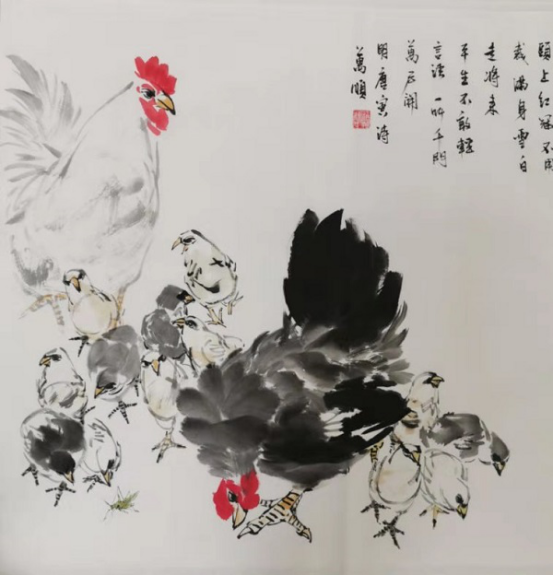 頭上紅冠不用
裁滿身雪白
走將来
平生不敢輕
言語一叫千門
萬戶開
明唐寅詩
萬順